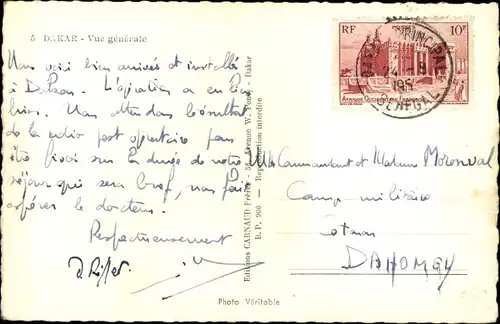 5 DAKAR - Vue générale
Nous voici bien arrivés et installés
à Dakar. L'opération a eu lieu
hier. Nous attendons le résultat
de la radio post opératoire pour
être fixé sur la durée de notre
séjour qui sera bref, nous fait
espérer le docteur.
Respectueusement
Editions CARNAUD Frères - 58, Avenue W. Ponty - Dakar
B. P. 966 - Reproduction interdite
RF 10F
DAKAR PRINCIPAL
24 - 9
195
SÉNÉGAL
AFRIQUE OCCIDENTALE FRANÇAISE
Commandant et Madame
Camp militaire
Cotonou
DAHOMEY
Photo Véritable